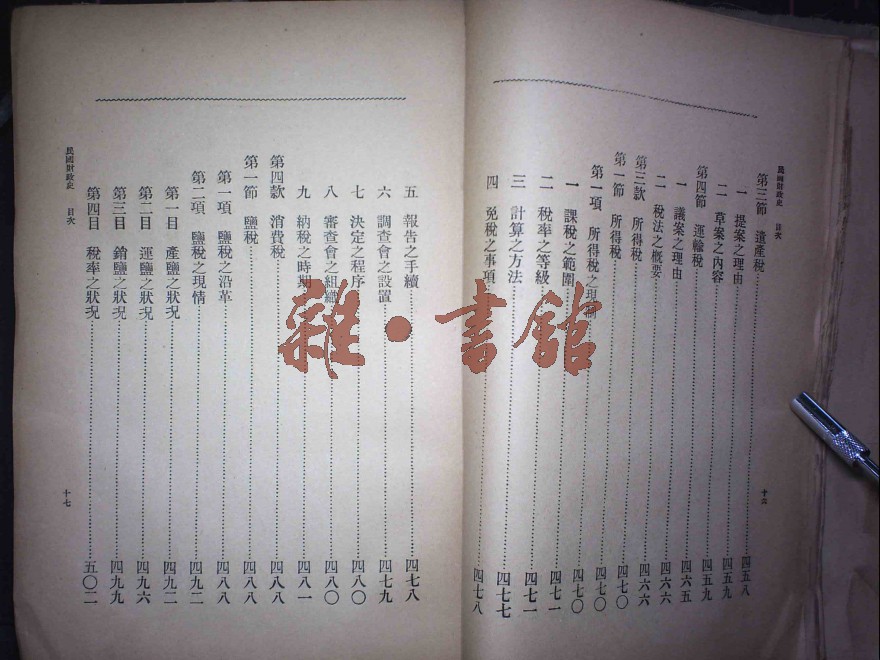 民國財政史 目次
第三節 遺產稅 四五八
一 提案之理由 四五九
二 草案之內容 四五九
第四節 運輸稅 四六五
一 議案之理由
二 稅法之概要 四六六
第三款 所得稅 四六六
第一節 所得稅 四七〇
第一項 所得稅之現制 四七〇
一 課稅之範圍 四七〇
二 稅率之等級 四七一
三 計算之方法 四七七
四 免稅之事項 四七八
十六
五 報告之手續 四七八
六 調查會之設置 四七九
七 決定之程序 四八〇
八 審查會之組織 四八〇
九 納稅之時期 四八一
第四款 消費稅 四八八
第一節 鹽稅 四八八
第一項 鹽稅之沿革 四八八
第二項 鹽稅之現情 四九二
第一目 產鹽之狀況 四九二
第二目 運鹽之狀況 四九六
第三目 銷鹽之狀況 四九九
第四目 稅率之狀況 五〇二
民國財政史 目次
十七
雜·書館